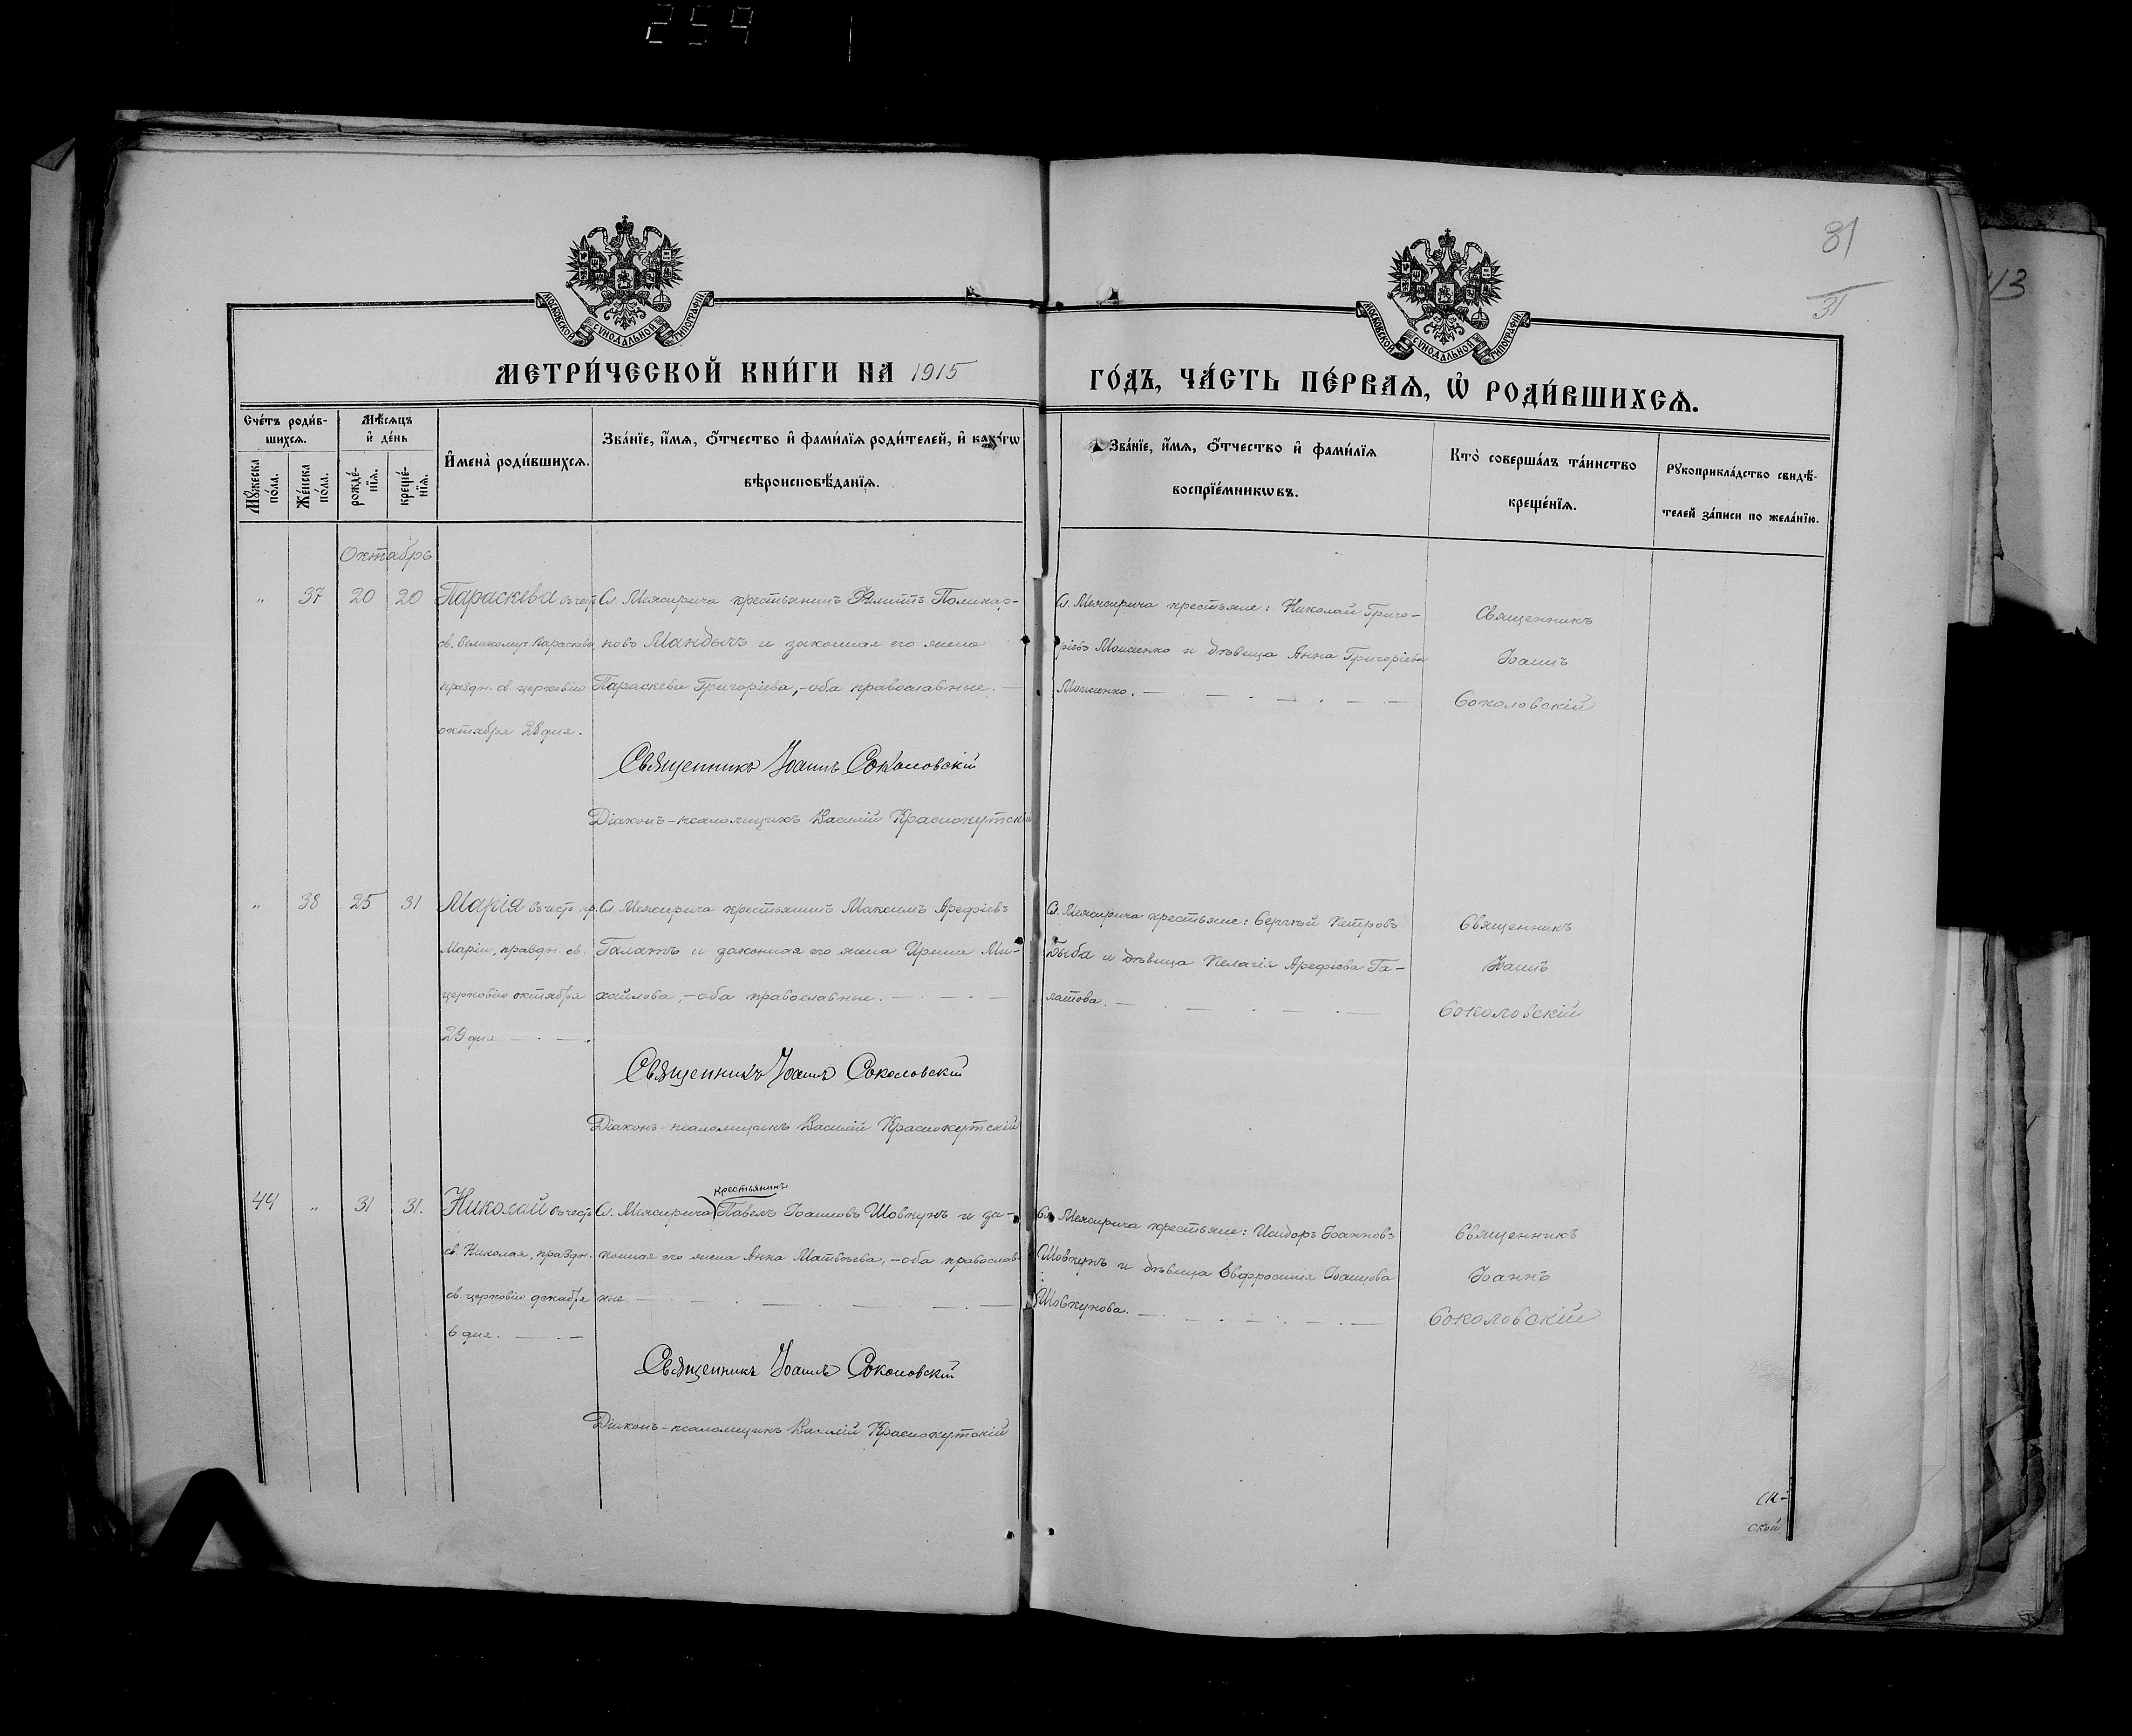 259
МОСКОВСКОЙ СѴНОДАЛЬНОЙ ТИПОГРАФІИ
МОСКОВСКОЙ СѴНОДАЛЬНОЙ ТИПОГРАФІИ
31
31
13
МЕТРИ́ЧЕСКОЙ КНИ́ГИ НА 1915
ГО́ДЪ, ЧА́СТЬ ПЕ́РВАѦ, Ѽ РОДИ́ВШИХСѦ.
Сче́тъ роди́в-
шихсѧ.
Мѣ́сѧцъ
и҆ де́нь
Мꙋ́жеска по́ла.
Же́нска по́ла.
рожде́-
нїѧ.
креще́-
нїѧ.
И҆мена̀ роди́вшихсѧ.
Зва́нїе, и҆́мѧ, о҆́тчество и҆ фами́лїѧ роди́телей, и҆ како́гѡ
вѣроисповѣ́данїѧ.
Зва́нїе, и҆́мѧ, о҆́тчество и҆ фами́лїѧ
воспрїе́мникѡвъ.
Кто̀ соверша́лъ та́инство
креще́нїѧ.
Рꙋкоприкла́дство свидѣ́-
телей за́писи по жела́нїю.
Октябрь
" 37 20 20 Параскева въ честь
св. великомуч. Параскевы,
праздн. св. церковію
октября 28 дня.
Сл. Межирича крестьянинъ Филиппъ Поликар-
повъ Мандычъ и законная его жена
Параскева Григоріева,-оба православные.
Священникъ Іоаннъ Соколовскій
Діаконъ-псаломщикъ Василій Краснокутскій
Сл. Межирича крестьяне: Николай Григо-
ріевъ Моисеенко и дѣвица Анна Григоріева
Моисеенко.
Священникъ
Іоаннъ
Соколовскій
" 38 25 31 Марія въ честь пр.
Маріи, праздн. св.
церковію октября
29 дня.
Сл. Межирича крестьянинъ Максимъ Арефіевъ
Галатъ и законная его жена Ирина Ми-
хайлова,-оба православные.
Священникъ Іоаннъ Соколовскій
Діаконъ-псаломщикъ Василій Краснокутскій
Сл. Межирича крестьяне: Сергѣй Петровъ
Дыба и дѣвица Пелагія Арефіева Га-
латова.
Священникъ
Іоаннъ
Соколовскій
44 " 31 31. Николай въ честь
св. Николая, праздн.
св. церковію декабря
6 дня.
крестьянинъ
Сл. Межирича Павелъ Іоанновъ Шовкунъ и за-
конная его жена Анна Матвѣева,-оба православ-
ные
Священникъ Іоаннъ Соколовскій
Діаконъ-псаломщикъ Василій Краснокутскій
Сл. Межирича крестьяне: Исидоръ Іоанновъ
Шовкунъ и дѣвица Евфросинія Іоаннова
Шовкунова.
Священникъ
Іоаннъ
Соколовскій
ской